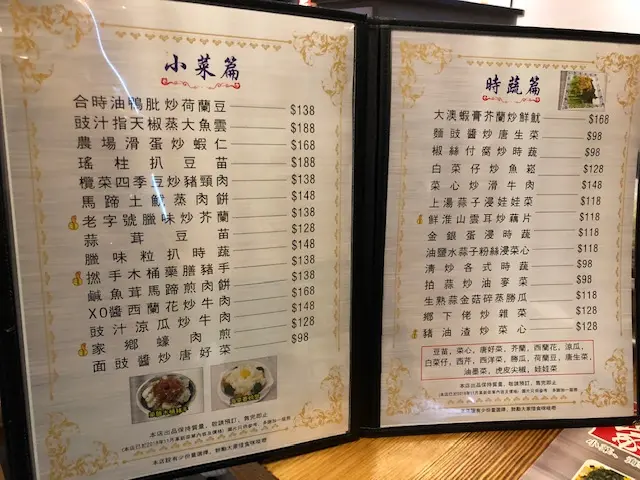 小菜篇
合時油鴨肶炒荷蘭豆 $138
豉汁指天椒蒸大魚雲 $188
農場滑蛋炒蝦仁 $168
瑤柱扒豆苗 $188
欖菜四季豆炒豬頸肉 $138
馬蹄土魷蒸肉餅 $148
老字號臘味炒芥蘭 $138
蒜茸豆苗 $128
臘味粒扒時蔬 $148
撚手木桶藥膳豬手 $138
鹹魚茸馬蹄煎肉餅 $138
XO醬西蘭花炒牛肉 $168
豉汁涼瓜炒牛肉 $148
家鄉蠔肉煎 $128
面豉醬炒唐好菜 $98
本店出品保持質量，敬請預訂，售完即止
時蔬篇
大澳蝦膏芥蘭炒鮮魷 $168
麵豉醬炒唐生菜 $98
椒絲付腐炒時蔬 $98
白菜仔炒魚崧 $128
菜心炒滑牛肉 $148
上湯蒜子浸娃娃菜 $118
鮮淮山雲耳炒藕片 $118
金銀蛋浸時蔬 $118
油鹽水蒜子粉絲浸菜心 $118
清炒各式時蔬 $98
拍蒜炒油麥菜 $98
生熟蒜金菇碎蒸勝瓜 $118
鄉下佬炒雜菜 $128
豬油渣炒菜心 $128
豆苗，菜心，唐好菜，芥蘭，西蘭花，涼瓜，
白菜仔，西芹，西洋菜，勝瓜，荷蘭豆，唐生菜，
油墨菜，虎皮尖椒，娃娃菜
本店出品保持質量，敬請預訂，售完即止